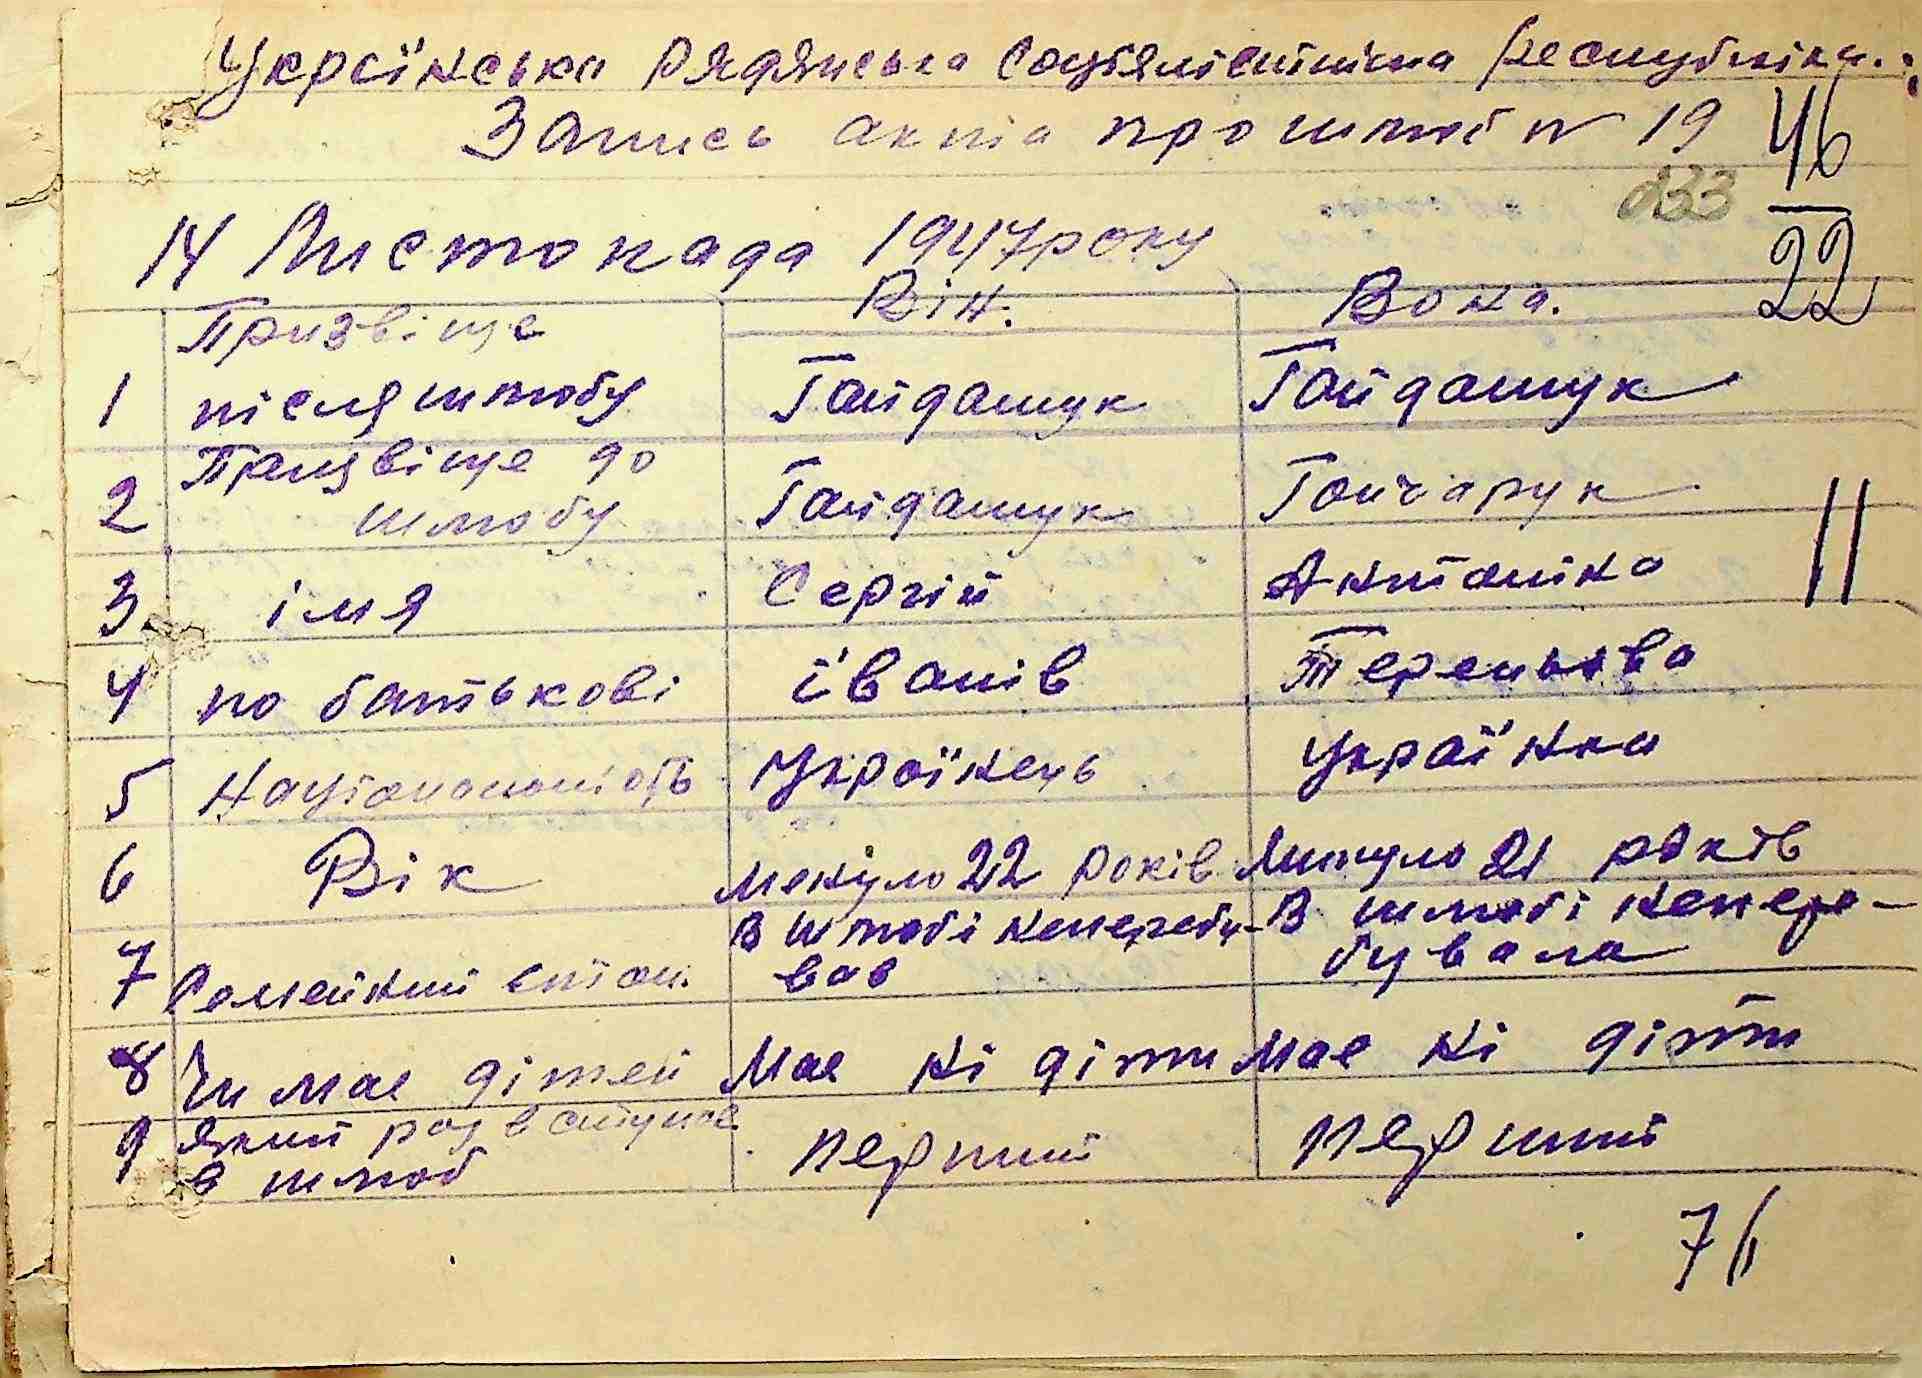 Українська Рядянська Соціялістична республіка.
Запись акта про шлюб № 19
46
233
22
14 Листопада 1947 року
Він. Вона.
1 Призвіще після шлюбу Гайдащук Гайдащук
2 Призвіще до шлюбу Гайдащук Гончарук
3. імя Сергій Антоніна
4 по батькові Іванів Тереньова
5 Національність Українець Українка
6 Вік Менуло 22 років Минуло 21 років
7 Семейний стан. В шлюбі неперебував В шлюбі неперебувала
8 Чи має дітей Має ні діти Має ні діти
9 який раз вступає в шлюб перший перший
11
76